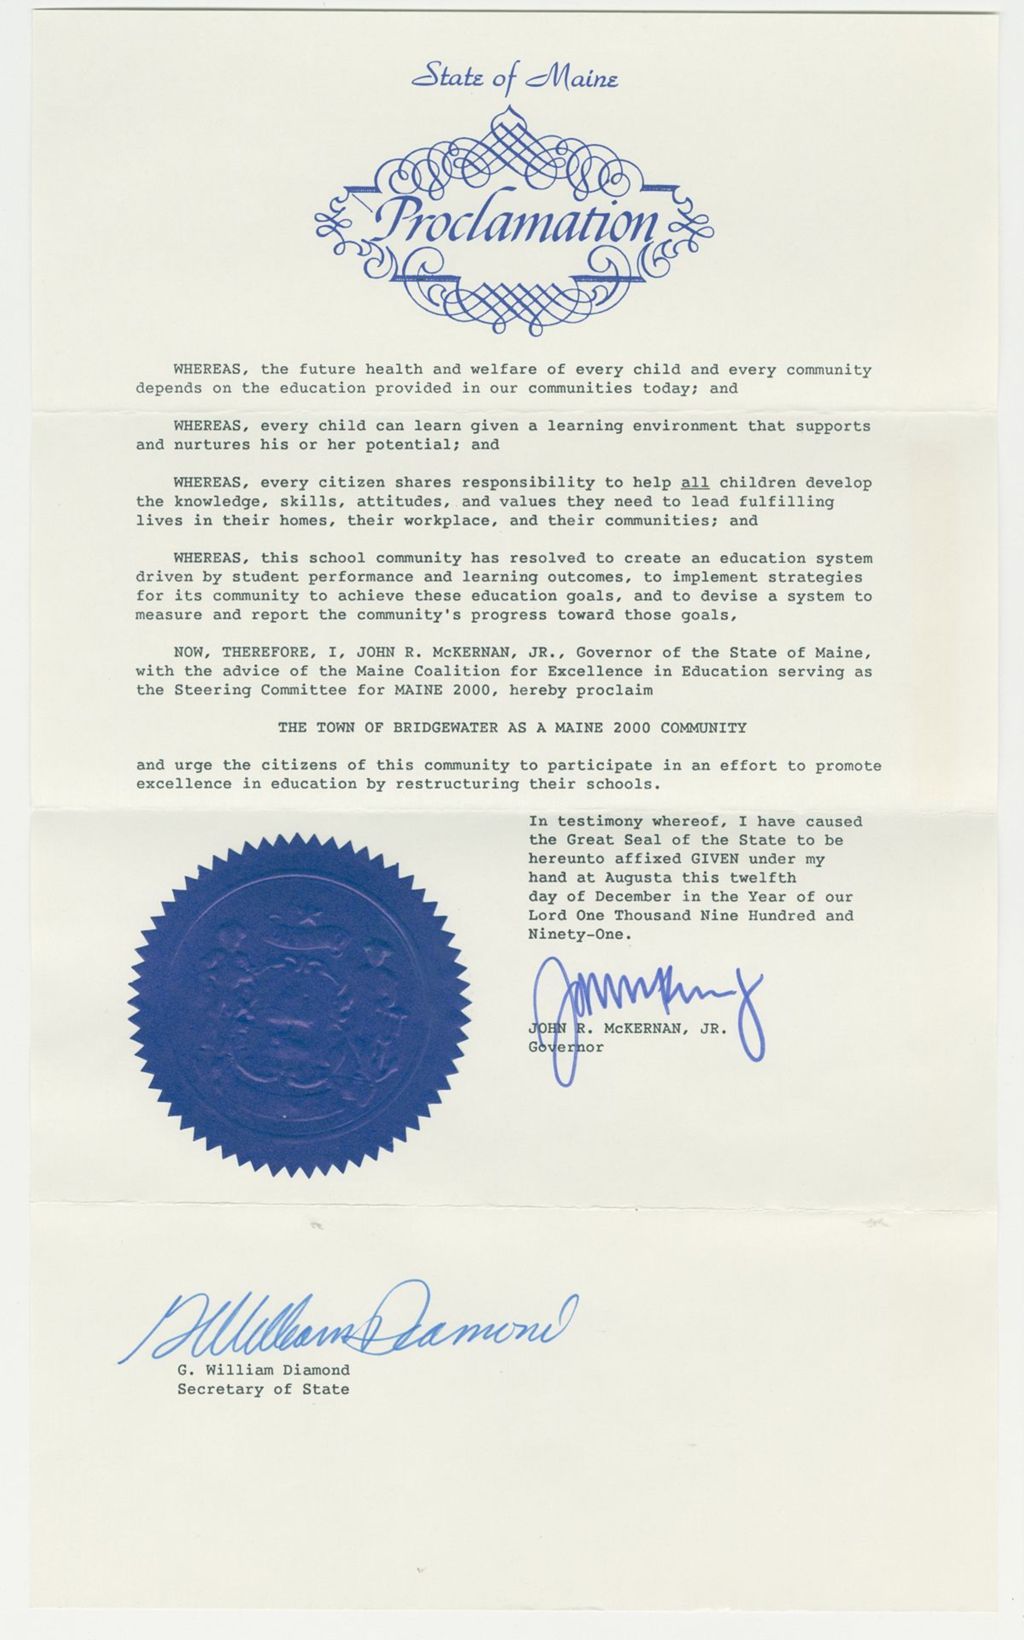 State of Maine
Proclamation
WHEREAS, the future health and welfare of every child and every community
depends on the education provided in our communities today; and
WHEREAS, every child can learn given a learning environment that supports
and nurtures his or her potential; and
WHEREAS, every citizen shares responsibility to help all children develop
the knowledge, skills, attitudes, and values they need to lead fulfilling
lives in their homes, their workplace, and their communities; and
WHEREAS, this school community has resolved to create an education system
driven by student performance and learning outcomes, to implement strategies
for its community to achieve these education goals, and to devise a system to
measure and report the community's progress toward those goals,
NOW, THEREFORE, I, JOHN R. McKERNAN, JR., Governor of the State of Maine,
with the advice of the Maine Coalition for Excellence in Education serving as
the Steering Committee for MAINE 2000, hereby proclaim
THE TOWN OF BRIDGEWATER AS A MAINE 2000 COMMUNITY
and urge the citizens of this community to participate in an effort to promote
excellence in education by restructuring their schools.
In testimony whereof, I have caused
the Great Seal of the State to be
hereunto affixed GIVEN under my
hand at Augusta this twelfth
day of December in the Year of our
Lord One Thousand Nine Hundred and
Ninety-One.
JOHN R. McKERNAN, JR.
Governor
G William Diamond
G. William Diamond
Secretary of State